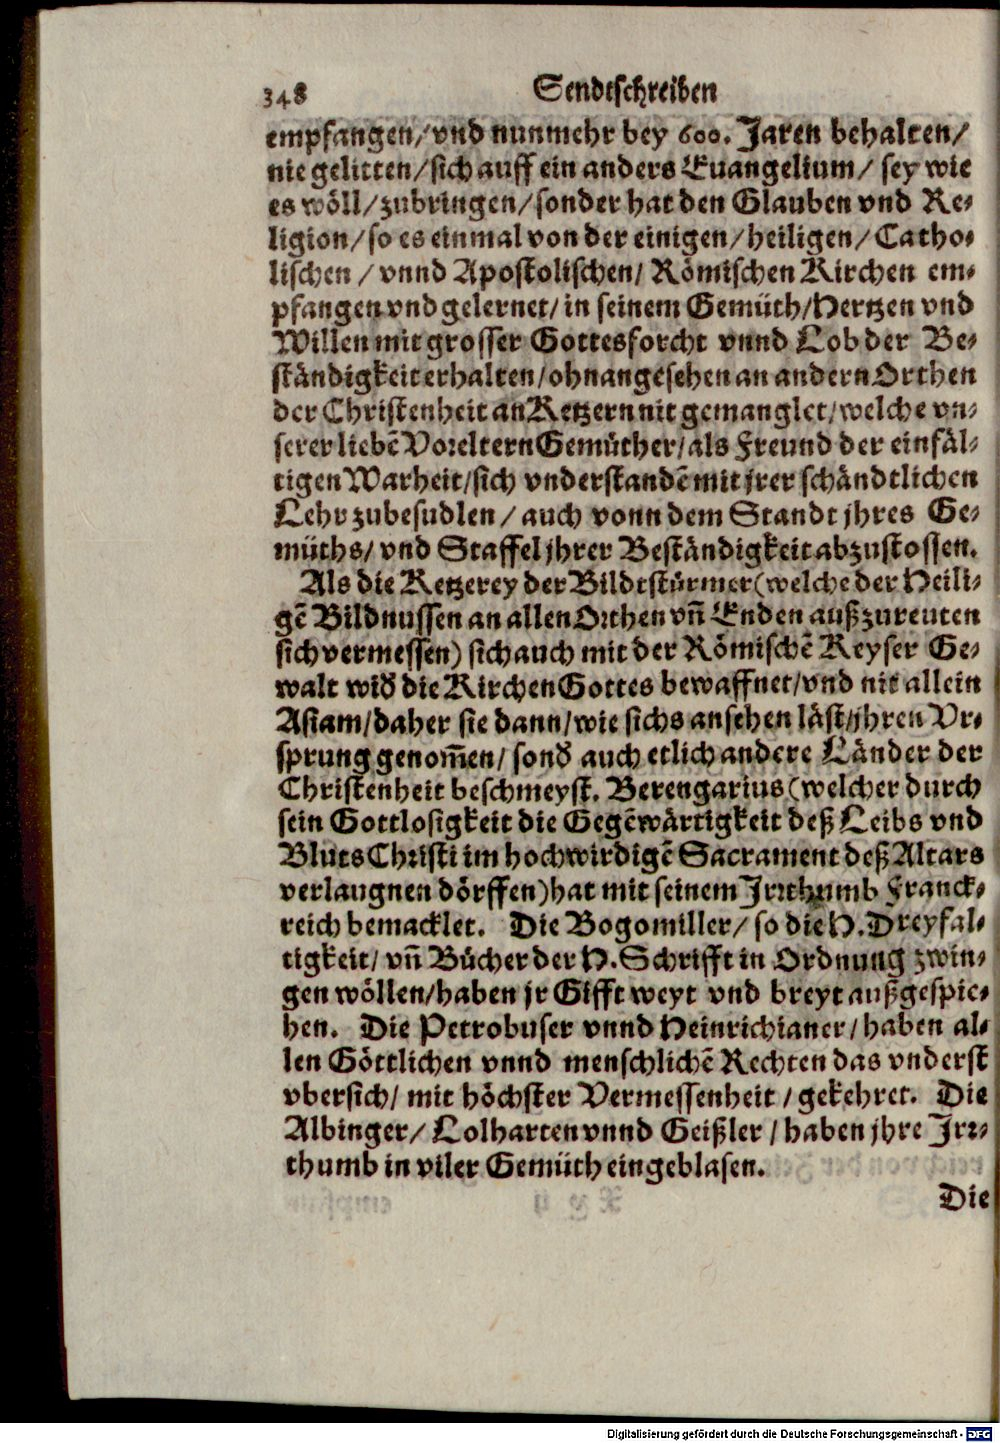 348 Sendtschreiben
empfangen/ vnd nunmehr bey 600. Jaren behalten/
nie gelitten/ sich auff ein anders Euangelium/ sey wie
es wöll/ zubringen/ sonder hat den Glauben vnd Re-
ligion/ so es einmal von der einigen/ heiligen/ Catho-
lischen/ vnnd Apostolischen/ Römischen Kirchen em-
pfangen vnd gelernet/ in seinem Gemüth/ Hertzen vnd
Willen mit grosser Gottesforcht vnnd Lob der Be-
ständigkeit erhalten/ ohnangesehen an andern Orthen
der Christenheit an Ketzern nit gemanglet/ welche vn-
serer liebẽ Voreltern Gemüther/ als Freund der einfäl-
tigen Warheit/ sich vnderstandẽ mit jrer schändtlichen
Lehr zubesudlen/ auch vonn dem Standt jhres Ge-
müths/ vnd Staffel jhrer Beständigkeit abzustossen.
Als die Ketzerey der Bildtstürmer (welche der Heili-
gẽ Bildnussen an allen Orthen vñ Enden außzureuten
sich vermessen) sich auch mit der Römischẽ Keyser Ge-
walt wid' die Kirchen Gottes bewaffnet/ vnd nit allein
Asiam/ daher sie dann/ wie sichs ansehen läst/ jhren Vr-
sprung genom̃en/ sond' auch etlich andere Länder der
Christenheit beschmeyst. Berengarius (welcher durch
sein Gottlosigkeit die Gegẽwärtigkeit deß Leibs vnd
Bluts Christi im hochwirdigẽ Sacrament deß Altars
verlaugnen dörffen) hat mit seinem Irrthumb Franck-
reich bemacklet. Die Bogomiller/ so die H. Dreyfal-
tigkeit/ vñ Bücher der H. Schrifft in Ordnung zwin-
gen wöllen/ haben jr Gifft weyt vnd breyt außgespie-
hen. Die Petrobuser vnnd Heinrichianer/ haben al-
len Göttlichen vnnd menschlichẽ Rechten das vnderst
vbersich/ mit höchster Vermessenheit/ gekehret. Die
Albinger/ Lolharten vnnd Geißler/ haben jhre Irr-
thumb in viler Gemüth eingeblasen.
Die
Digitalisierung gefördert durch die Deutsche Forschungsgemeinschaft - DFG